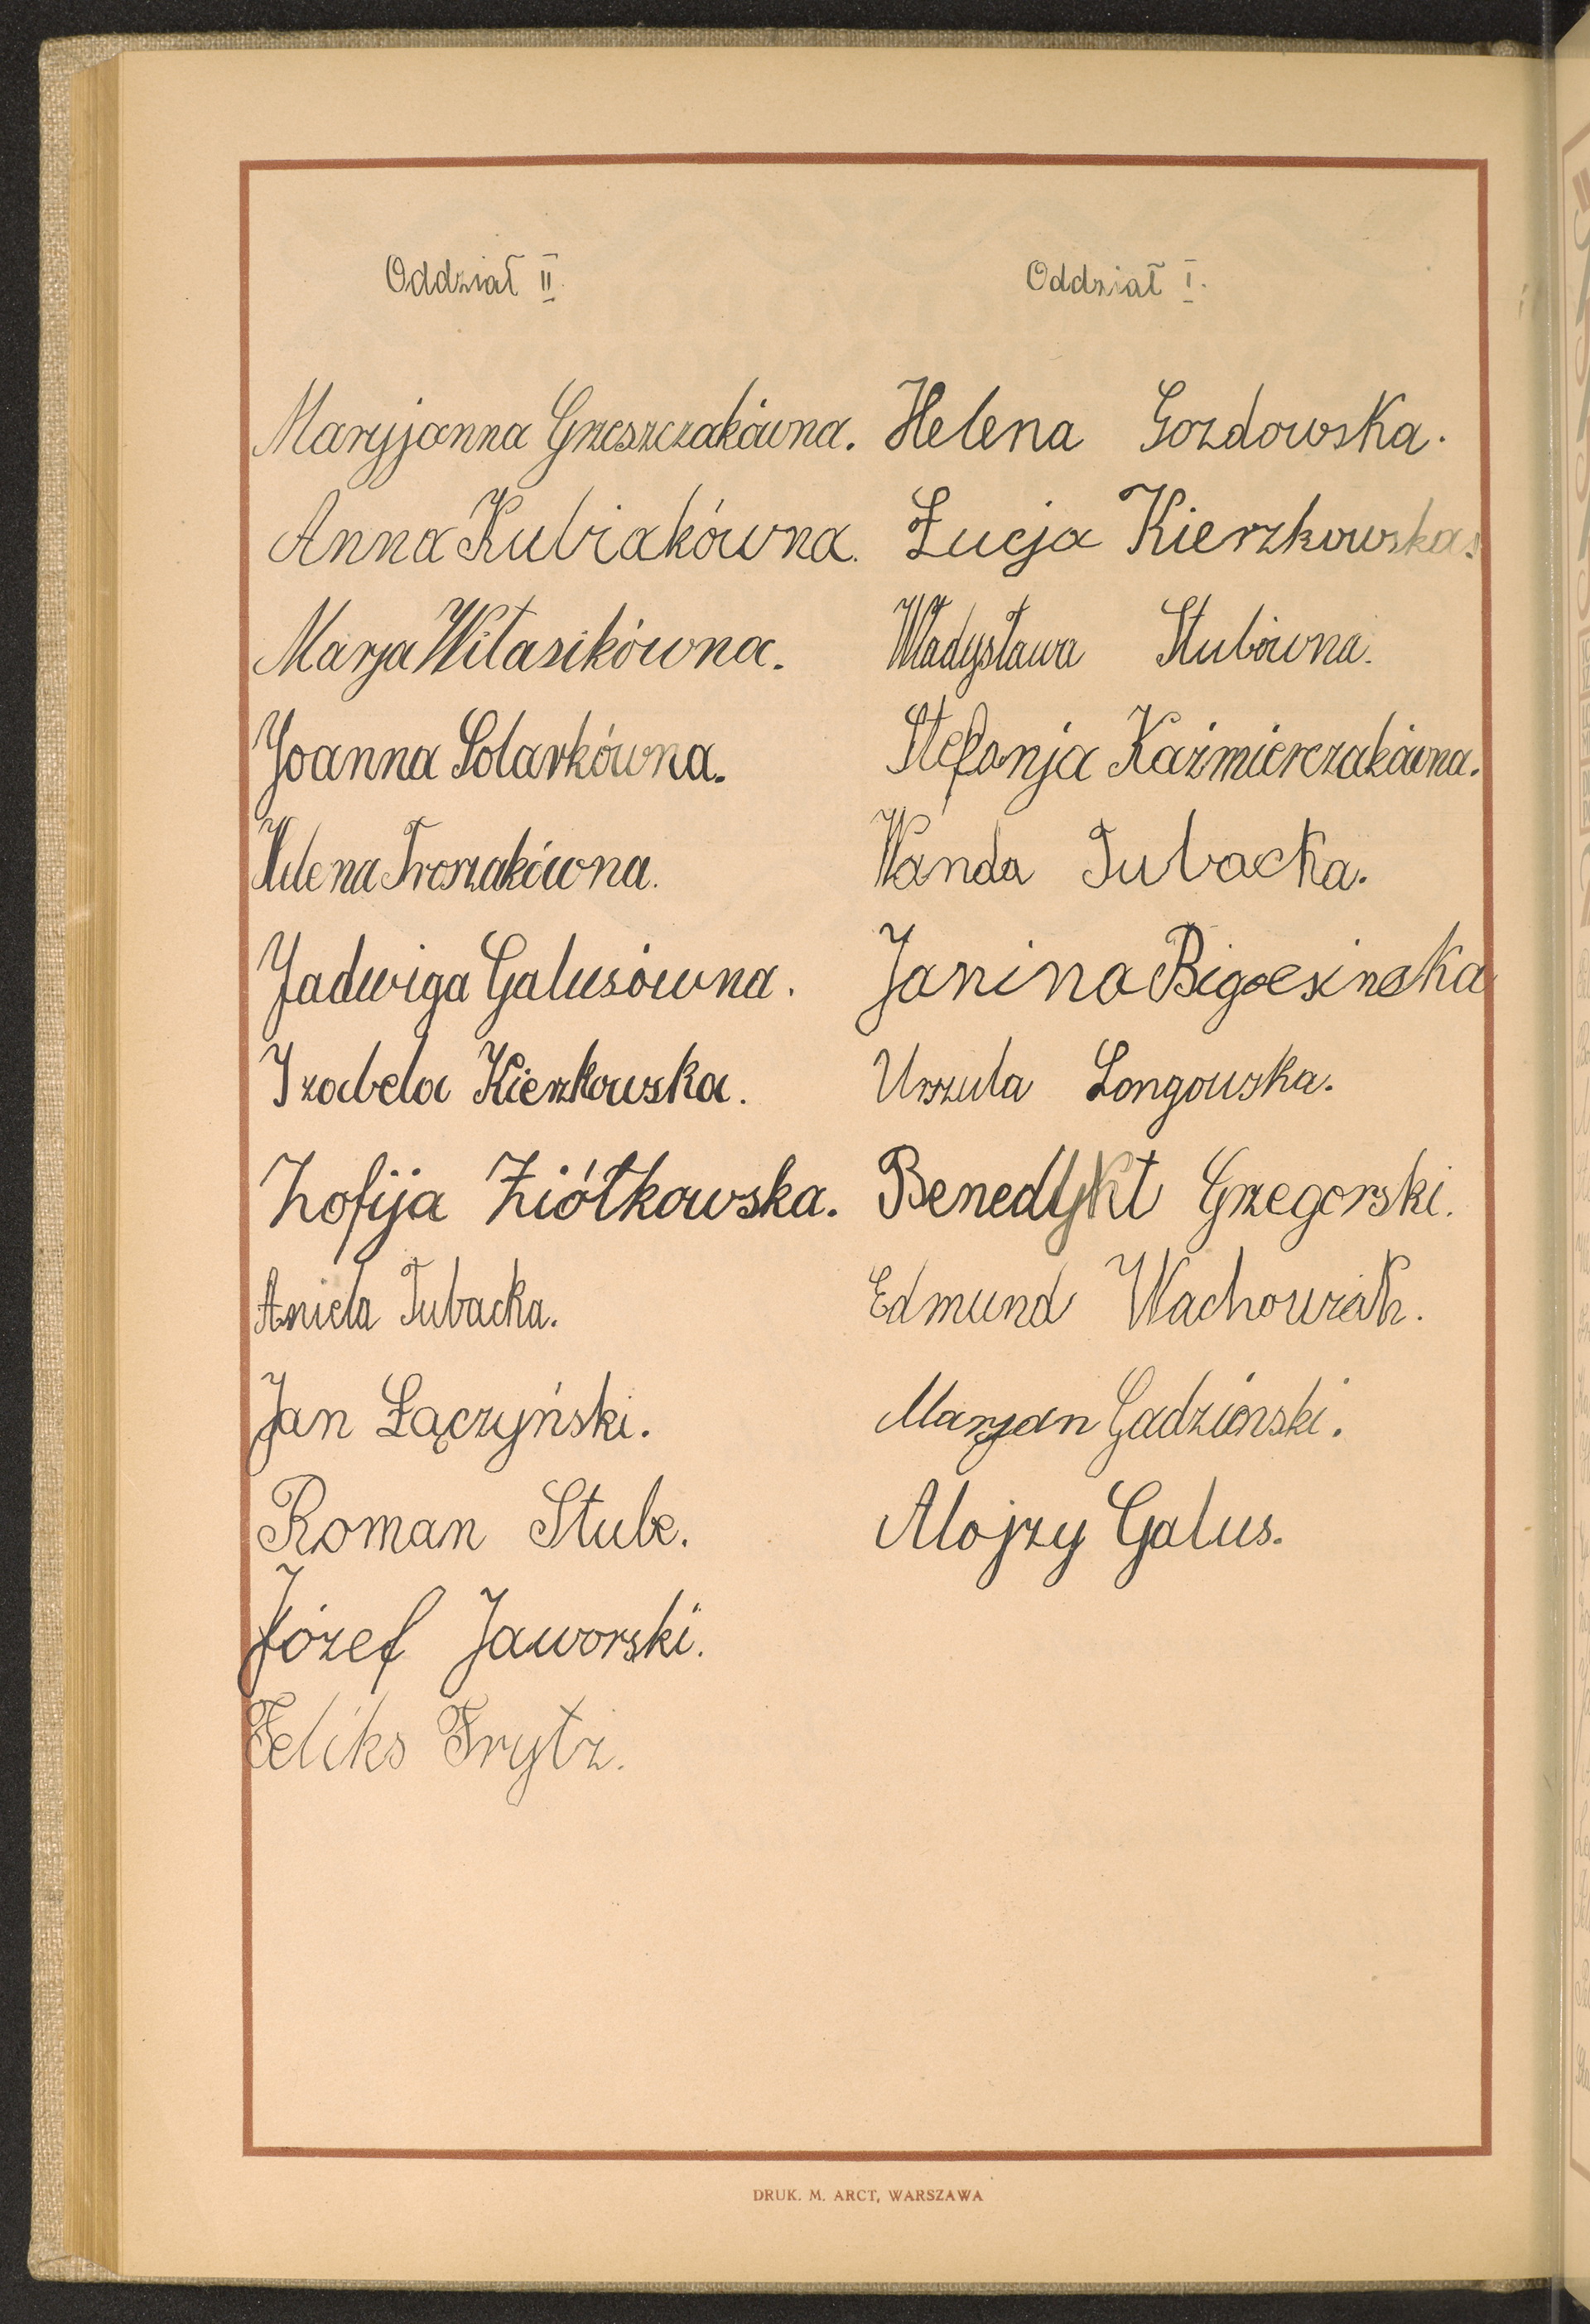 Oddział II.
Maryjanna Grzeszczakówna.
Anna Kubiakówna.
Marja Witasikówna.
Joanna Solarkówna.
Helena Troszakówna.
Jadwiga Galusówna.
Izabela Kierzkowska.
Zofija Ziółkowska.
Aniela Tubacka.
Jan Łączyński.
Roman Stube.
Józef Jaworski.
Feliks Frytz.
Oddział I.
Helena Gozdowska.
Łucja Kierzkowska.
Władysława Stubówna.
Stefanja Kaźmierczakówna.
Wanda Tubacka.
Janina
Urszula Longowska.
Benedykt Grzegorski.
Edmund Wachowiak.
Marjan Gadziński.
Alojzy Galus.
DRUK. M. ARCT, WARSZAWA